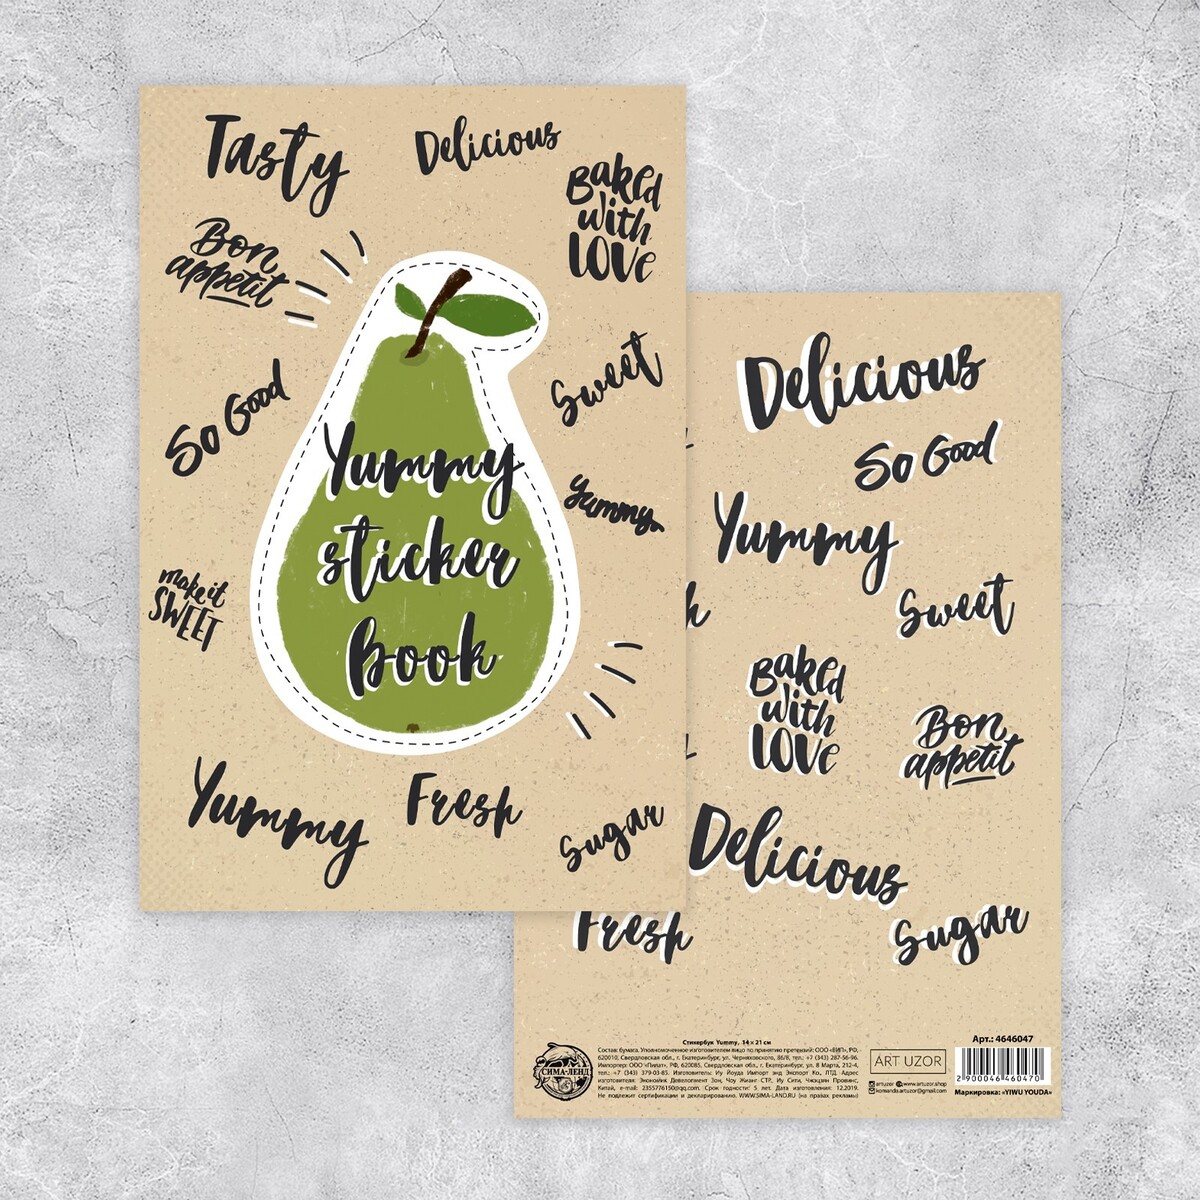 Tasty
Delicious
Baked
with
LOVE
Bon
appetit
So Good
Sweet
Yummy
sticker
book
Yummy
make it
SWEET
Yummy
Fresh
Sugar
Delicious
So Good
Yummy
Sweet
Baked
with
LOVE
Bon
appetit
Delicious
Fresh
Sugar
СИМА-ЛЕНД
Стикербук Yummy, 14 × 21 см
Состав: бумага. Уполномоченное изготовителем лицо по принятию претензий: ООО «ВИП», РФ,
620010, Свердловская обл., г. Екатеринбург, ул. Черняховского, 86/8, тел.: +7 (343) 287-56-96.
Импортер: ООО «Пилат», РФ, 620085, Свердловская обл., г. Екатеринбург, ул. 8 Марта, 212-4,
тел.: +7 (343) 379-03-85. Изготовитель: Иу Йоуда Импорт энд Экспорт Ко., ЛТД. Адрес
изготовителя: Экономйк Девелопмент Зон, Чоу Жианг СТР, Иу Сити, Чжэцзян Провинс,
Китай, e-mail: 2355776150@qq.com. Срок годности: 5 лет. Дата изготовления: 12.2019.
Не подлежит сертификации и декларированию. WWW.SIMA-LAND.RU (на правах рекламы)
ART UZOR
artuzor www.artuzor.shop
komanda.artuzor@gmail.com
Арт.: 4646047
2 900046 460470
Маркировка: «YIWU YOUDA»